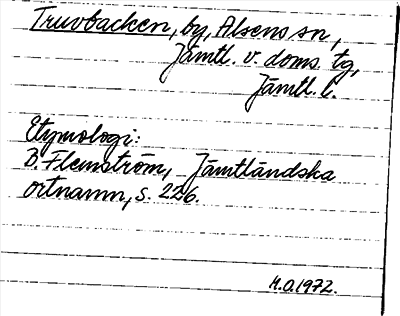 Truvbacken, by, Alsens sn,
Jämtl. v. doms. tg,
Jämtl. l.
Etymologi:
B. Flemström, Jämtländska
ortnamn, s. 226.
M.O. 1972.